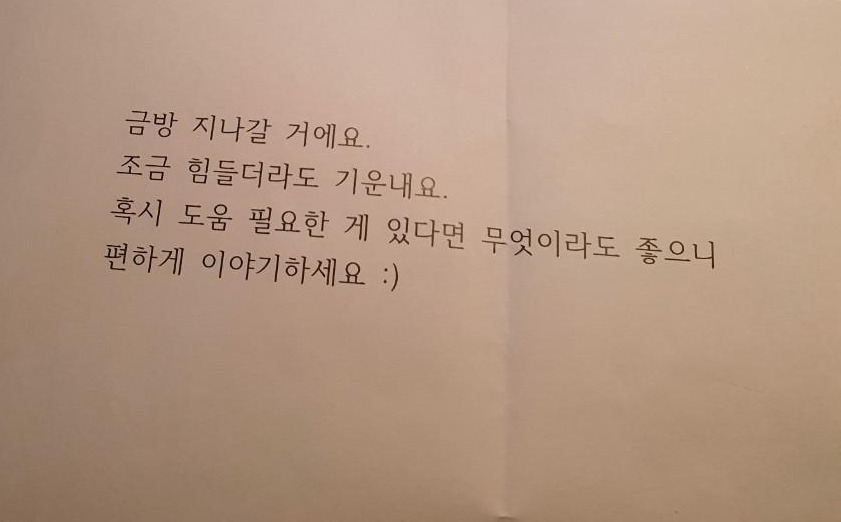 금방 지나갈 거에요.
조금 힘들더라도 기운내요.
혹시 도움 필요한 게 있다면 무엇이라도 좋으니
편하게 이야기하세요 :)